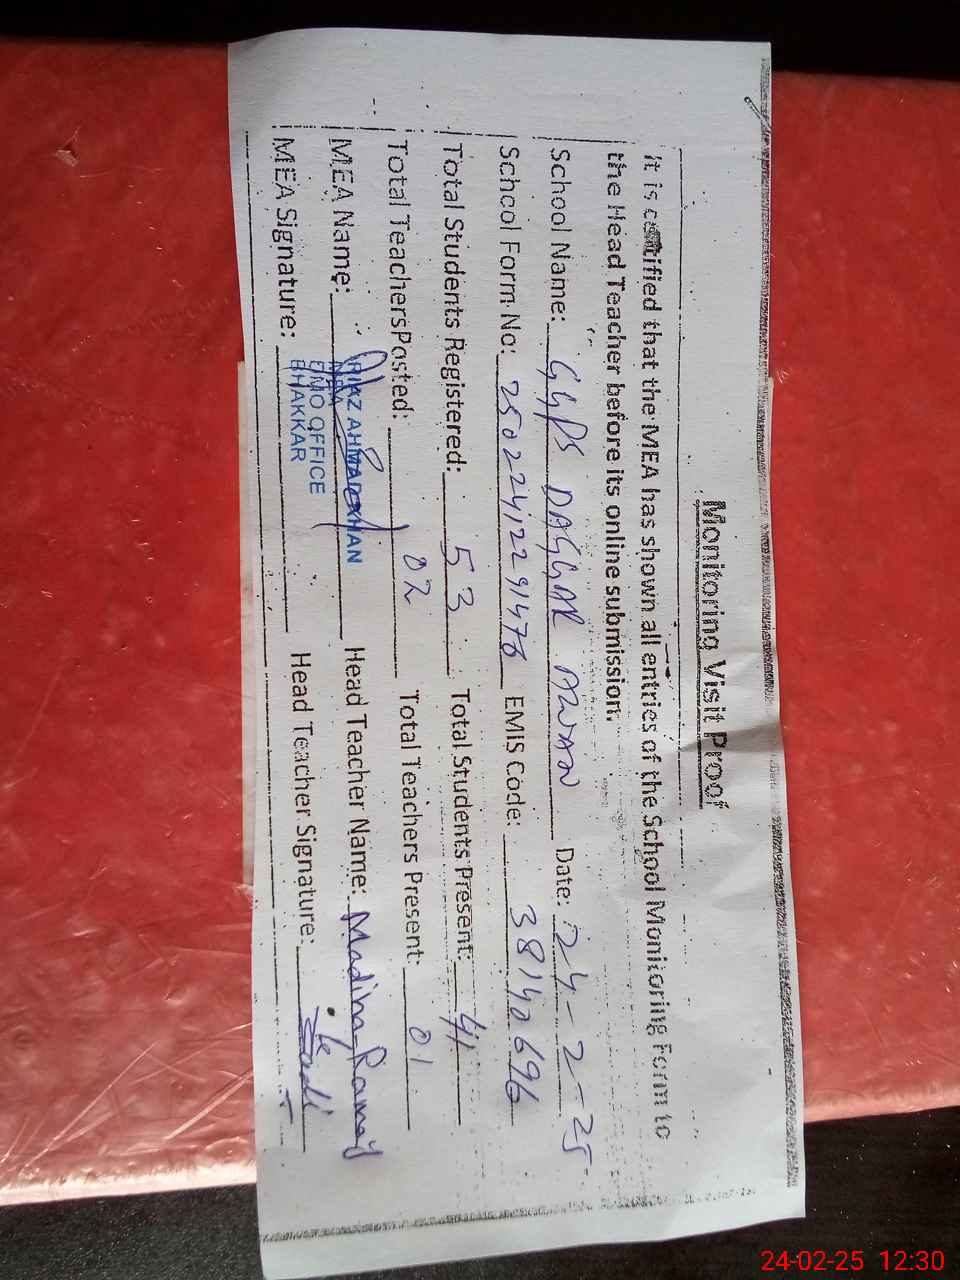 Monitoring Visit Proof
It is certified that the MEA has shown all entries of the School Monitoring Form to
the Head Teacher before its online submission.
School Name: GGPS DAGGAR AWAN Date: 24-2-25
School Form No: EMIS Code: 38140696
Total Students Registered: 53 Total Students Present: 41
Total Teachers Posted: 02 Total Teachers Present: 01
MEA Name: RIAZ AHMAD KHAN Head Teacher Name: Madiha Ramay
MEA
EMO OFFICE
BHAKKAR
MEA Signature: Head Teacher Signature:
24-02-25 12:30